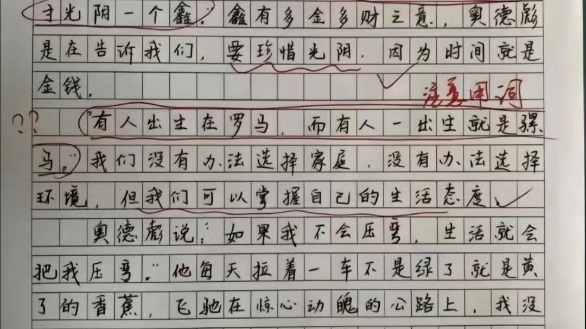 寸光阴一个鑫。鑫有多金多财之意，奥德彪
是在告诉我们，要珍惜光阴。因为时间就是
金钱。
注意用词
??
"有人出生在罗马，而有人一出生就是骡
马。"我们没有办法选择家庭，没有办法选择
环境，但我们可以掌握自己的生活态度。
奥德彪说："如果我不会压弯，生活就会
把我压弯。"他每天拉着一车不是绿了就是黄
了的香蕉，飞驰在惊心动魄的公路上，我没